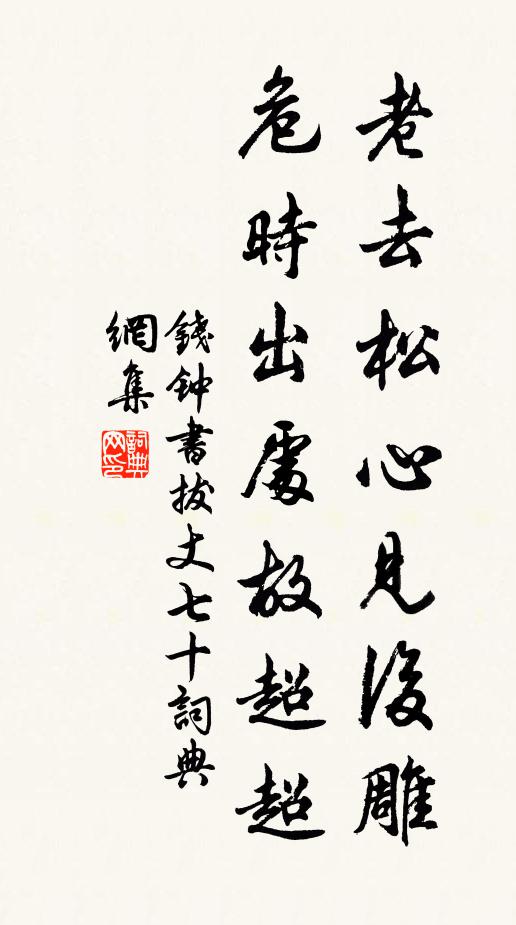 老去松心見後雕
危時出處故超超
錢钟書拔丈七十詞典
網集
詞典网印